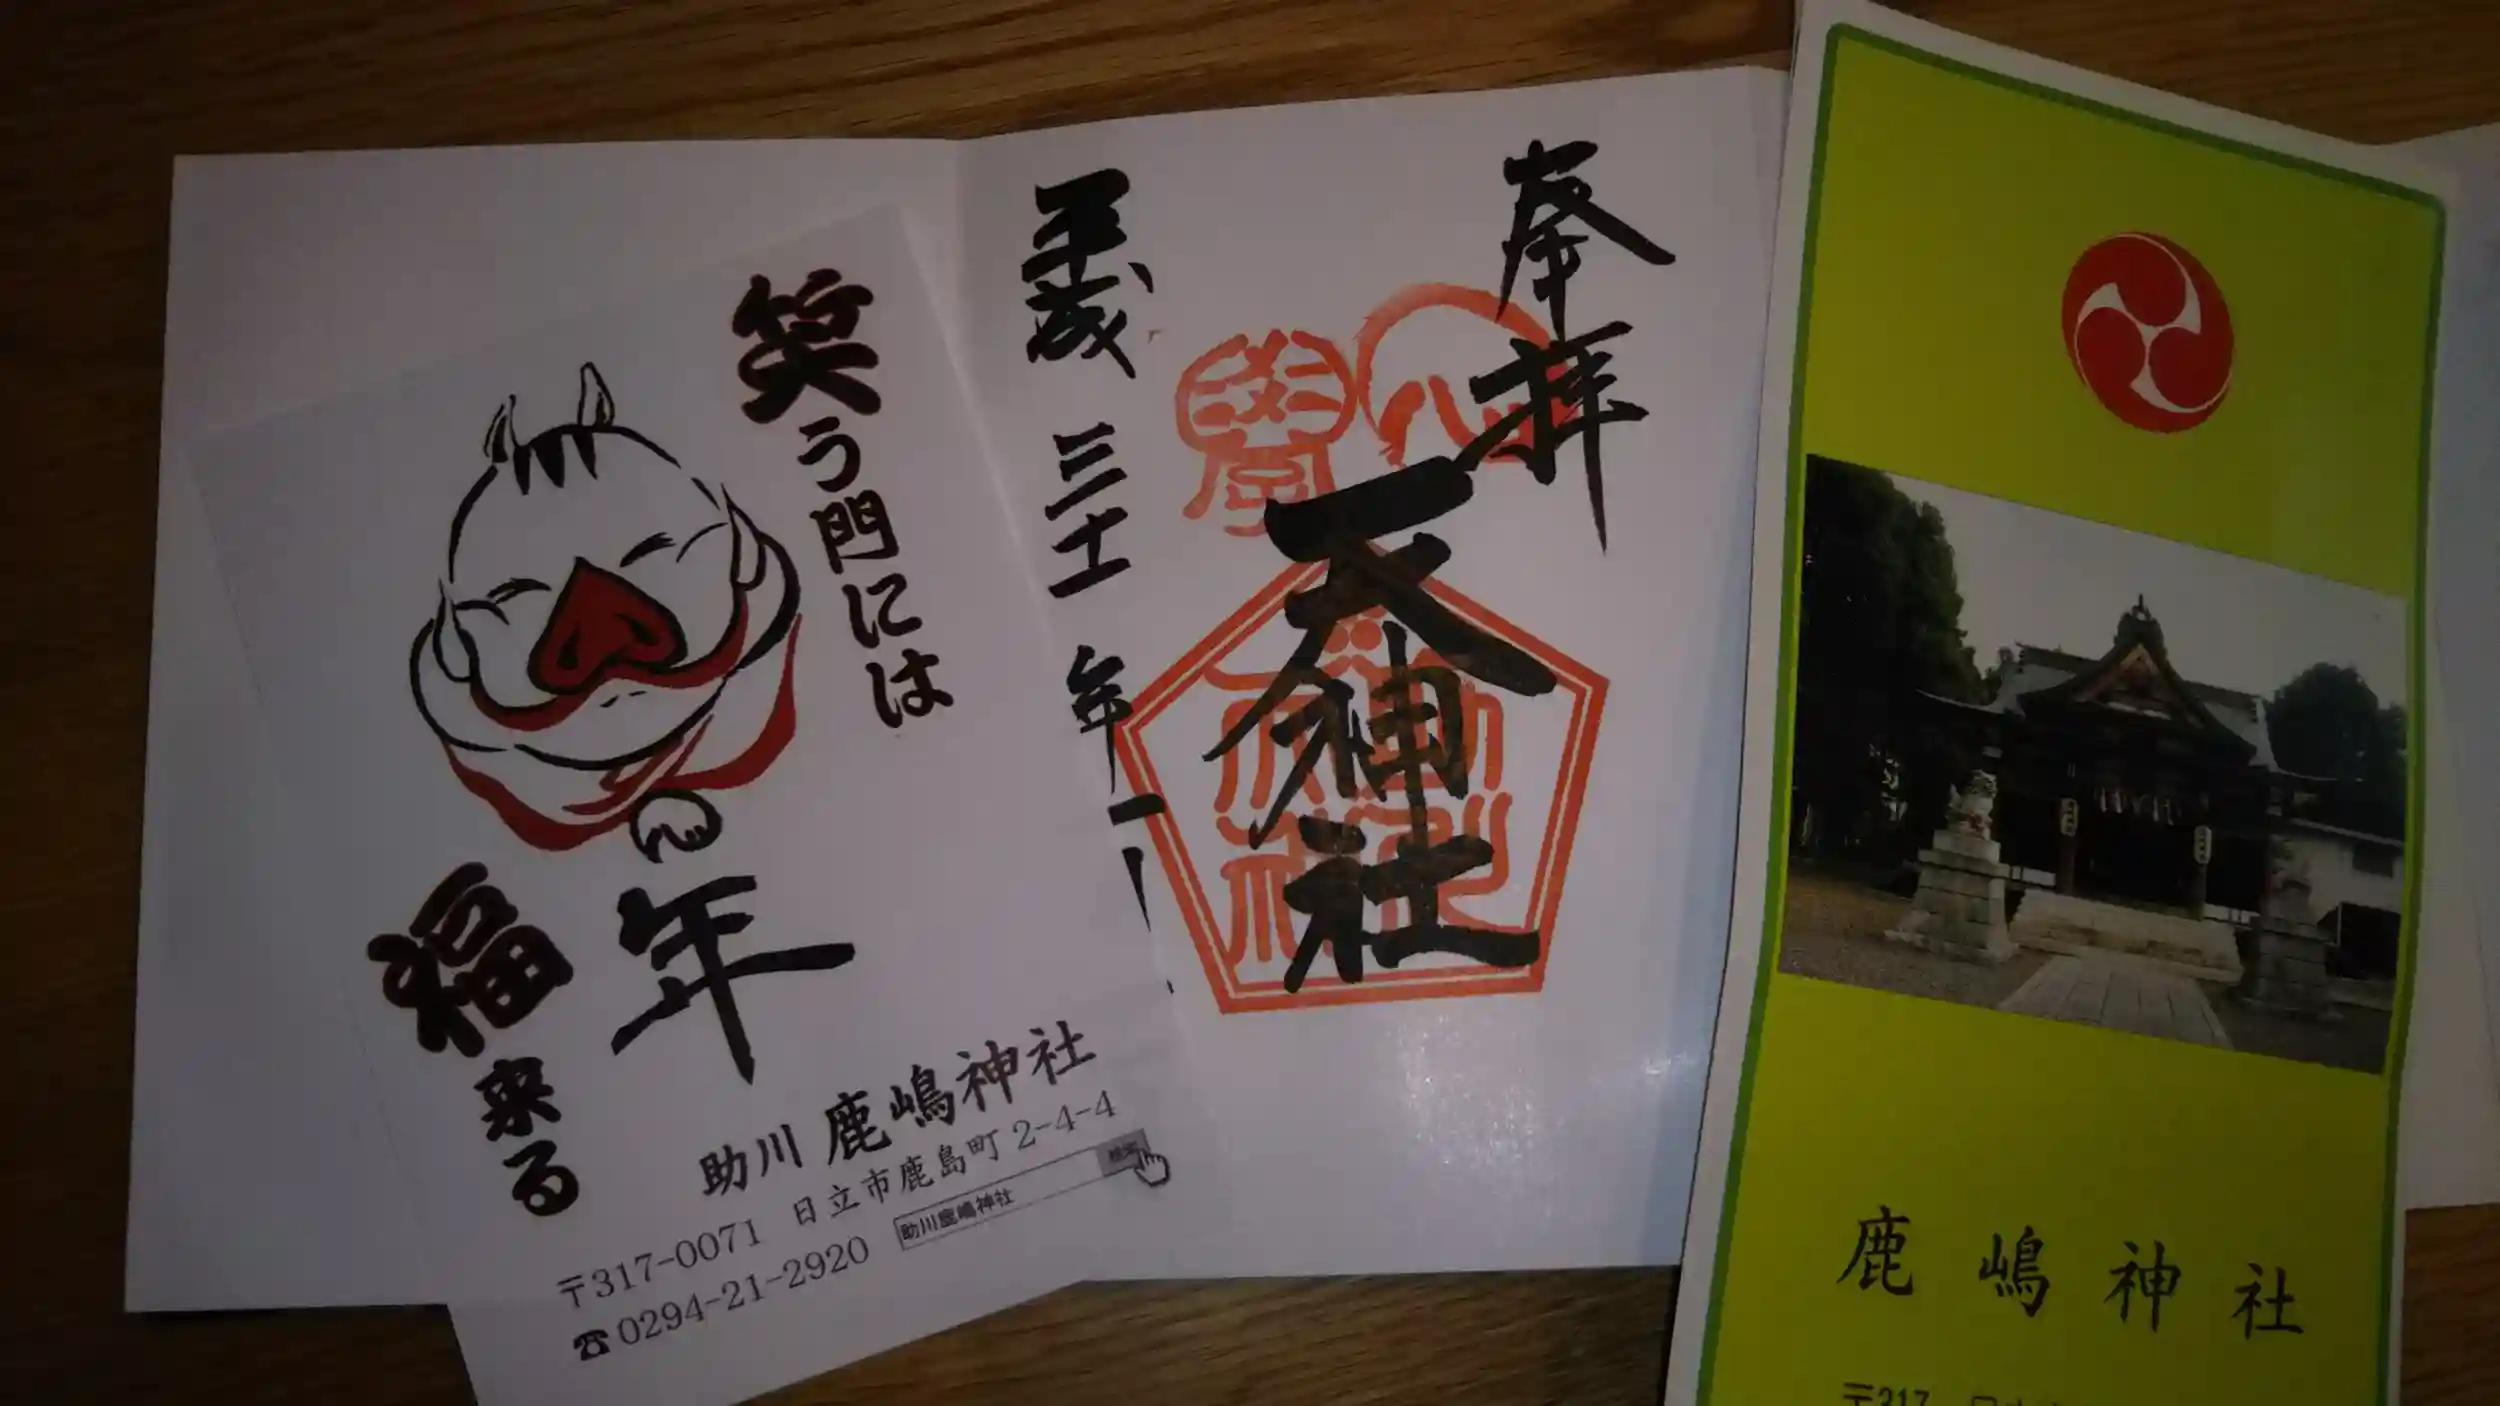 奉拝
天神社
平成
三十一
年
一
笑う門には
年
福来る
助川 鹿嶋神社
〒317-0071 日立市鹿島町 2-4-4
☎0294-21-2920
助川鹿嶋神社
検索
鹿嶋神社
〒317